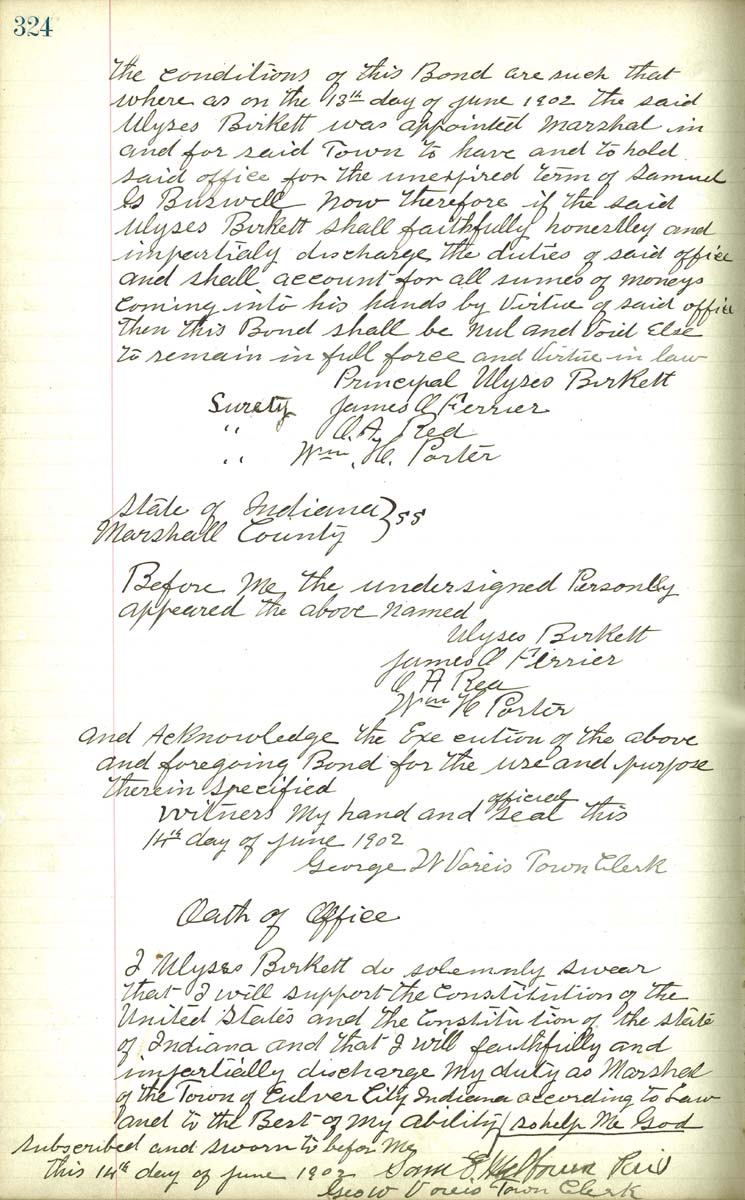 324
the conditions of this Bond are such that
where as on the 13th day of June 1902 the said
Ulyses Birkett was appointed Marshal in
and for said Town to have and to hold
said office for the unexpired term of Samuel
Buswell Now therefore if the said
Ulyses Birkett shall faithfully honestley and
impartialy discharge the duties of said office
and shall account for all sumes of moneys
coming into his hands by Virtue of said office
then this Bond shall be Nul and Void Else
to remain in full force and Virtue in law
Principal Ulyses Birkett
Surety James O Ferrier
" O. A. Rea
" Wm. H. Porter
State of Indiana } ss
Marshall County
Before Me the undersigned Personlly
appeared the above Named
Ulyses Birkett
James O Ferrier
O A Rea
Wm H Porter
and Acknowledge the Execution of the above
and foregoing Bond for the use and purpose
therein specified
Witness My hand and official seal this
14th day of June 1902
George W Voreis Town Clerk
Oath of Office
I Ulyses Birkett do solemnly swear
that I will support the Constitution of the
United States and the Constitution of the state
of Indiana and that I will faithfully and
impartially discharge My duty as Marshal
of the Town of Culver City Indiana according to Law
and to the Best of My Ability so help Me God
subscribed and sworn to befor Me
this 14th day of June 1902 Sam E
Geo W Voreis Town Clerk